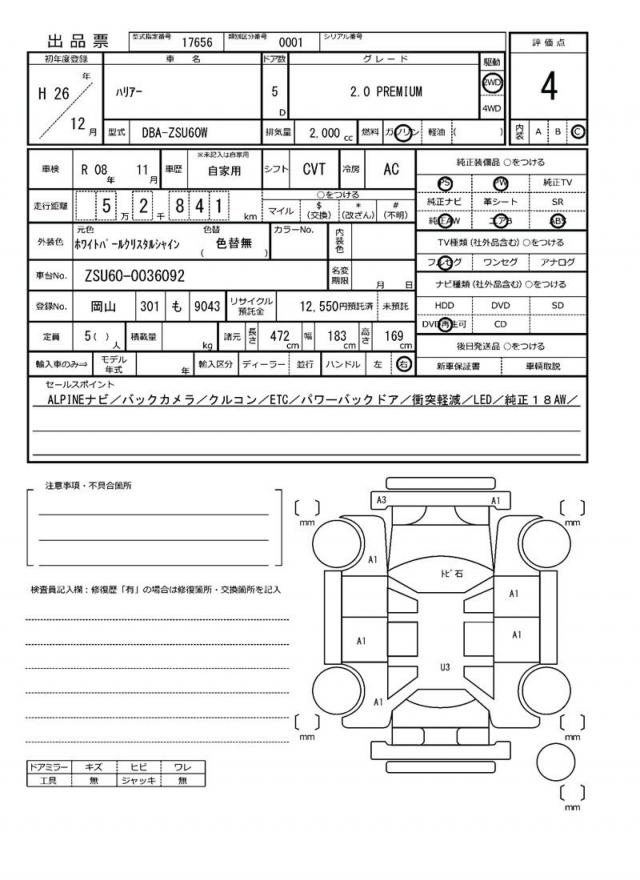 出品票 型式指定番号 17656 類別区分番号 0001 シリアル番号
評価点
4
内装 A B C
初年度登録 車名 ドア数 グレード 駆動
H 26 年 12 月 ハリアー 5 D 2.0 PREMIUM 2WD 4WD
型式 DBA-ZSU60W 排気量 2,000 cc 燃料 ガソリン 軽油 ( )
車検 R 08 年 11 月 車歴 ※未記入は自家用 自家用 シフト CVT 冷房 AC
走行距離 5 万 2 千 8 4 1 km ○をつける マイル $ (交換) * (改ざん) # (不明)
外装色 元色 ホワイトパールクリスタルシャイン 色替 ( 色替無 ) カラーNo. 内装色
車台No. ZSU60-0036092 名変期限 月 日
登録No. 岡山 301 も 9043 リサイクル預託金 12,550円預託済 未預託
定員 5( ) 人 積載量 kg 諸元 長さ 472 cm 幅 183 cm 高さ 169 cm
輸入車のみ⇒ モデル年式 年 輸入区分 ディーラー 並行 ハンドル 左 右
純正装備品 ○をつける
PS PW 純正TV
純正ナビ 革シート SR
純正AW エアB ABS
TV種類(社外品含む)○をつける
フルセグ ワンセグ アナログ
ナビ種類(社外品含む)○をつける
HDD DVD SD
DVD再生可 CD
後日発送品 ○をつける
新車保証書 車輌取説
セールスポイント
ALPINEナビ/バックカメラ/クルコン/ETC/パワーバックドア/衝突軽減/LED/純正18AW/
注意事項・不具合箇所
検査員記入欄:修復歴「有」の場合は修復箇所・交換箇所を記入
ドアミラー キズ ヒビ ワレ
工具 無 ジャッキ 無
A3 A1
mm mm
A1
トビ石
A1
A1 A1
U3
A1
mm mm
mm